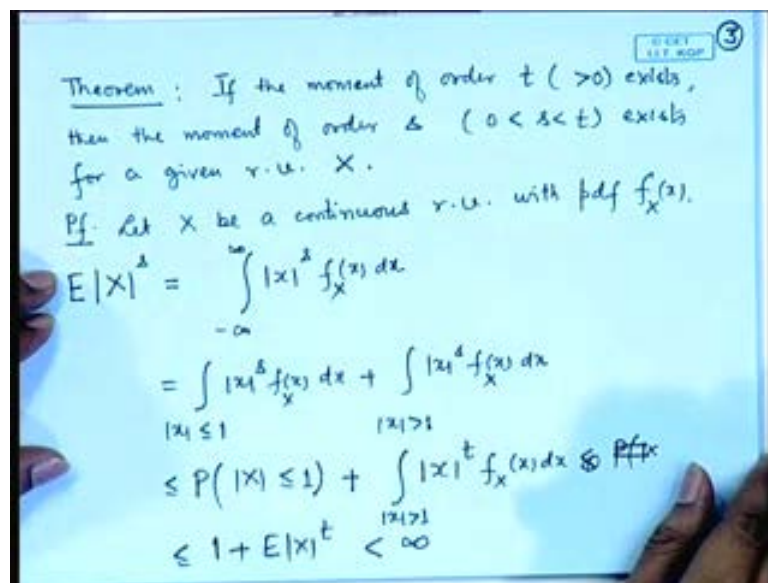 © CET
I.I.T. KGP
③
Theorem : If the moment of order t ( >0) exists,
then the moment of order s ( 0 < s < t) exists
for a given r.v. X .
Pf. Let X be a continuous r.v. with pdf f_X(x).
E|X|^s = ∫_{-∞}^{∞} |x|^s f_X(x) dx
= ∫_{|x| ≤ 1} |x|^s f_X(x) dx + ∫_{|x|>1} |x|^s f_X(x) dx
≤ P( |X| ≤ 1) + ∫_{|x|>1} |x|^t f_X(x) dx
≤ 1 + E|X|^t < ∞